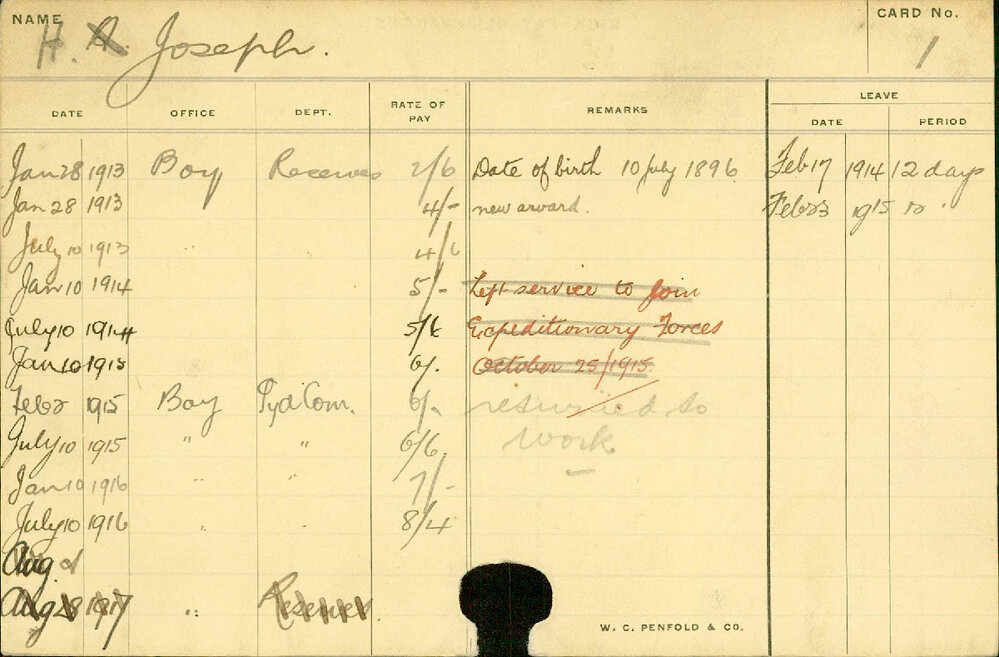 NAME
H. A. Joseph.
CARD No.
1
DATE OFFICE DEPT. RATE OF PAY REMARKS LEAVE
DATE PERIOD
Jan 28 1913 Boy Reserves 2/6 Date of birth 10 July 1896. Feb 17 1914 12 days
Jan 28 1913 4/- new award. Feb 23 1915 12 "
July 10 1913 " 4/6
Jan 10 1914 5/- Left service to join
July 10 1914 5/6 Expeditionary Forces
Jan 10 1915 6/. October 25/1915.
Feb 2 1915 Boy Pyd Com. 6/- resumed to
July 10 1915 " " 6/6 work.
Jan 10 1916 " " 7/-
July 10 1916 " " 8/4
Aug.
Aug 28 1917 " Reserves.
W. C. PENFOLD & CO.